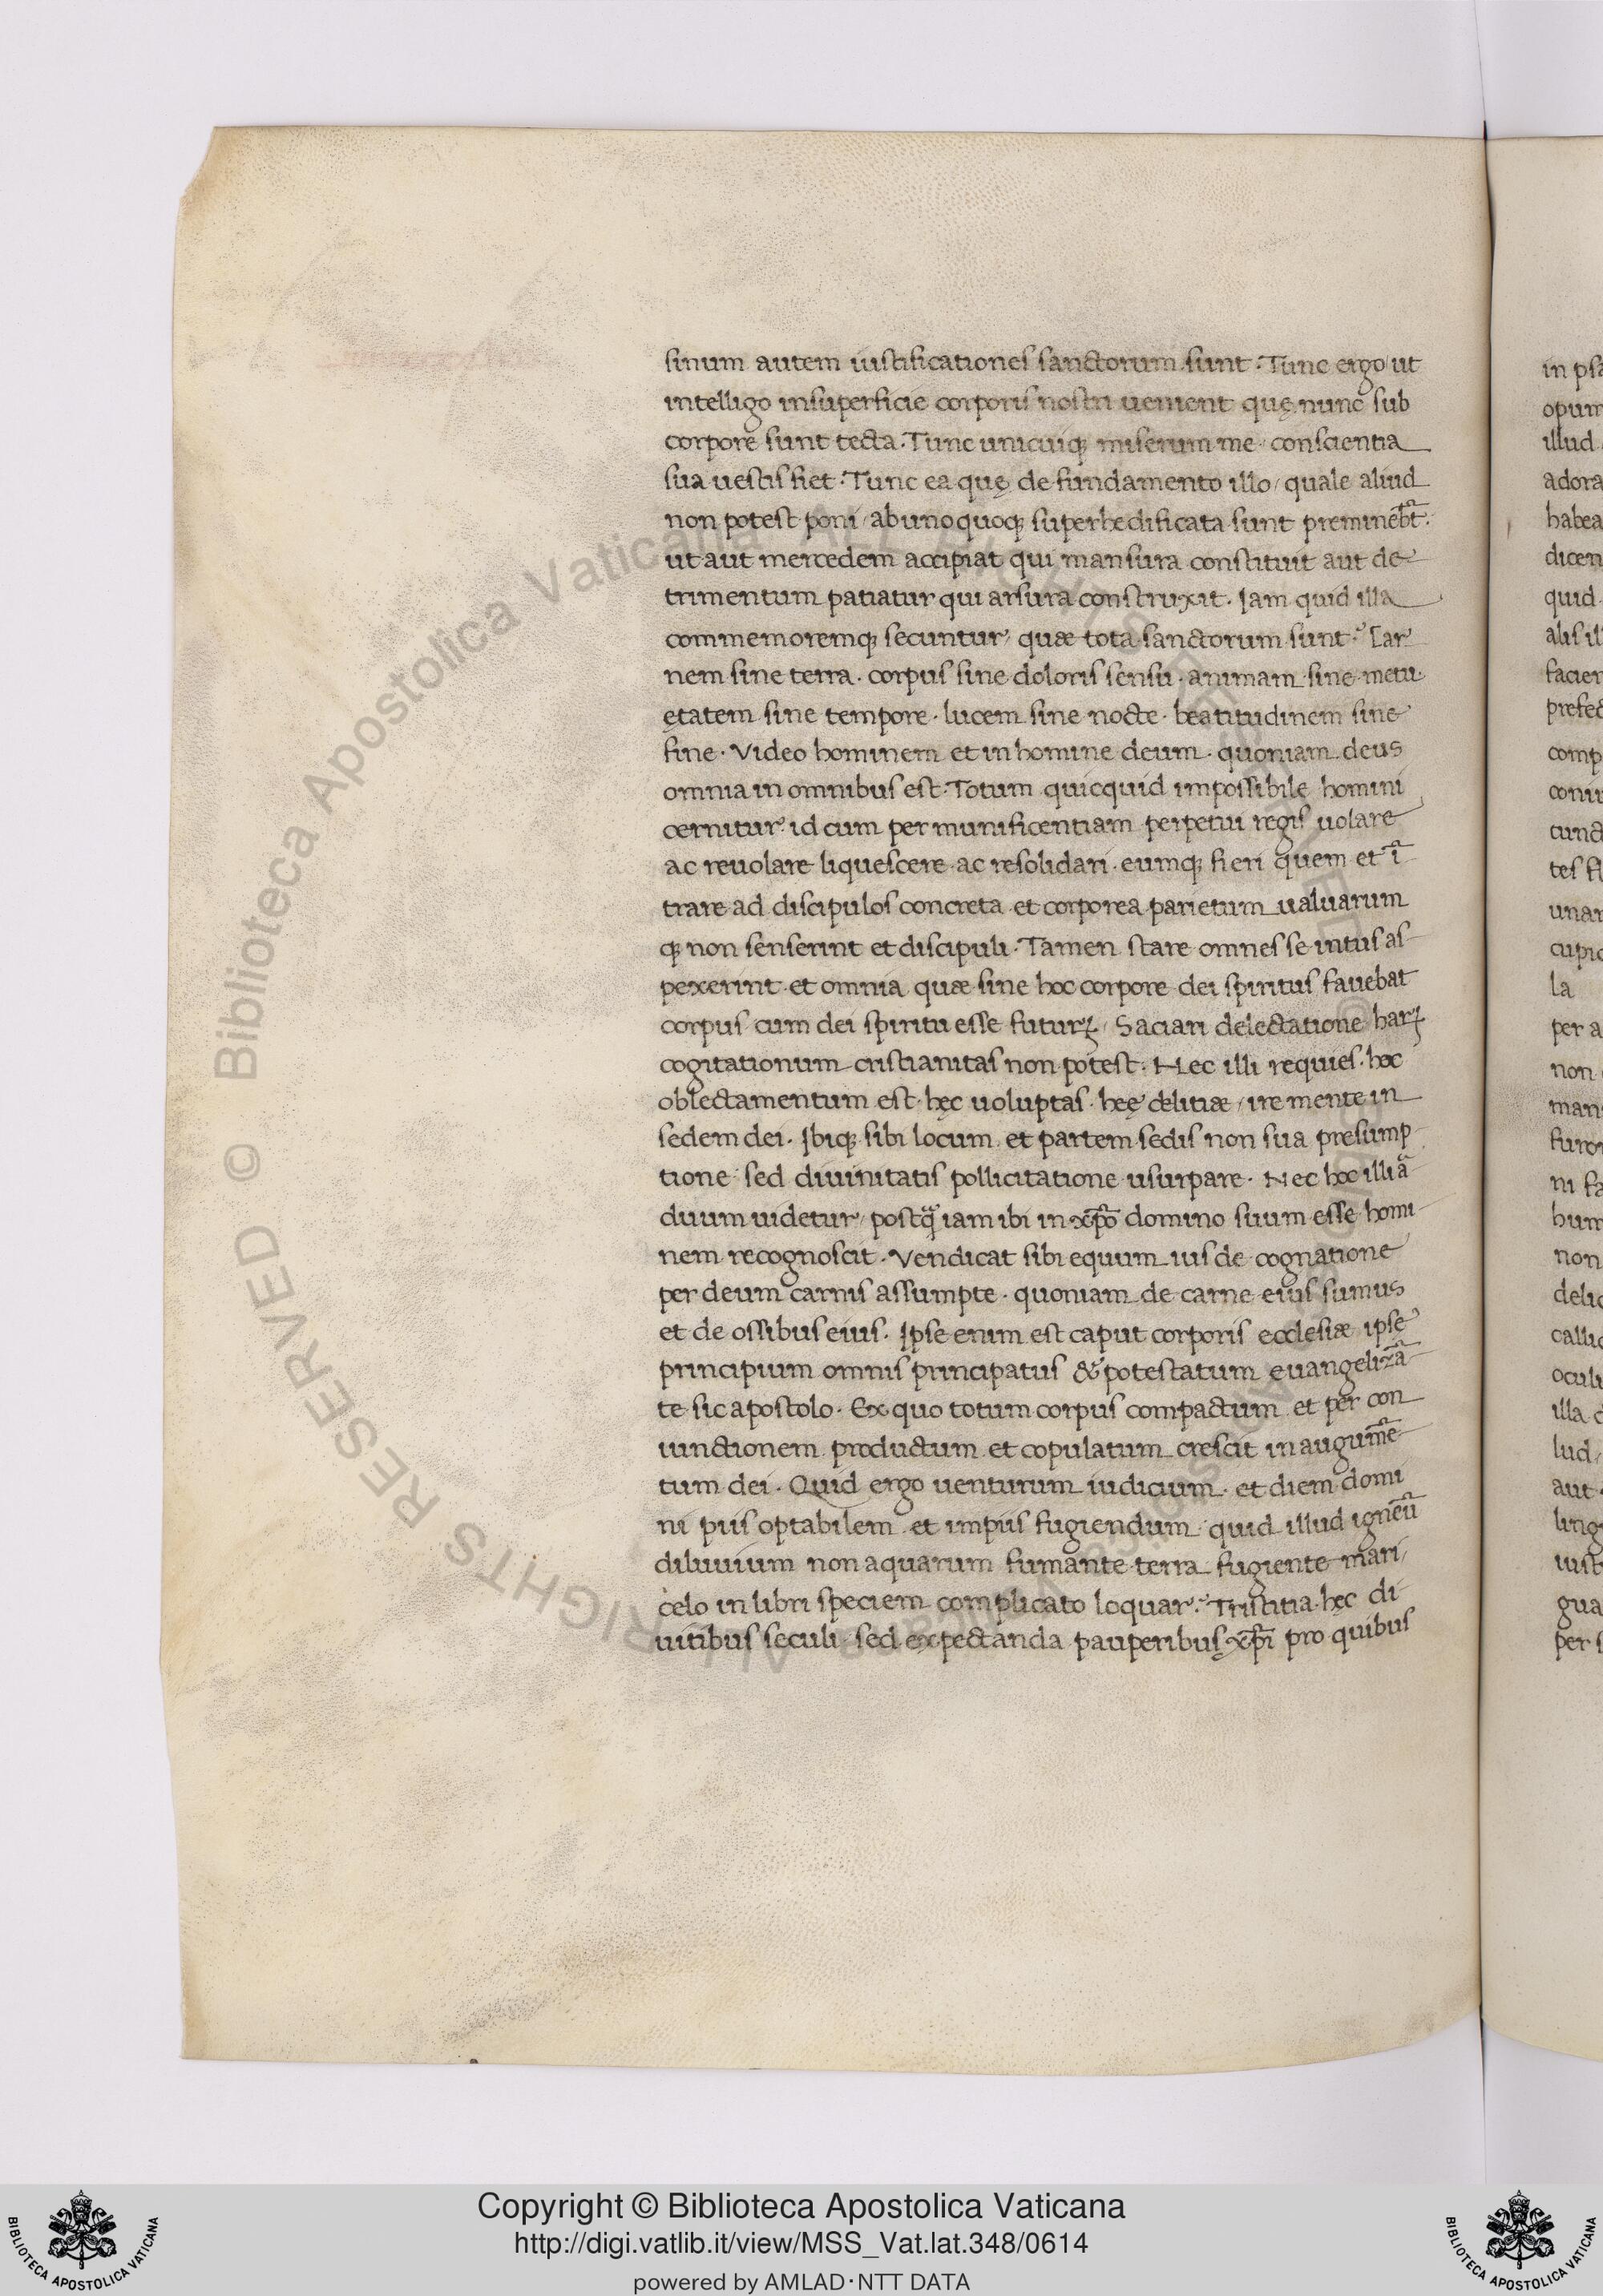 sinum autem iustificationes sanctorum sunt. Tunc ergo / ut
intelligo insuperficie corporis nostri uenient quę nunc sub
corpore sunt tecta. Tunc unicuiqꝫ miserum me / conscientia
sua uestis fiet. Tunc ea quę de fundamento illo / quale aliud
non potest poni / ab uno quoqꝫ superhedificata sunt preminebt̄.
ut aut mercedem accipiat qui mansura constituit aut de
trimentum patiatur qui arsura construxit. Iam quid illa
commemoremqꝫ secuntur / quæ tota sanctorum sunt? Car
nem sine terra. corpus sine doloris sensu. animam sine metu.
ętatem sine tempore. lucem sine nocte. beatitudinem sine
fine. Video hominem et in homine deum. quoniam deus
omnia in omnibus est. Totum quicquid impossibile homini
cernitur. id cum per munificentiam perpetui regis uolare
ac reuolare liquescere ac resolidari. eumqꝫ fieri quem et ī
trare ad discipulos concreta et corporea parietum ualuarum
qꝫ non senserint et discipuli. Tamen stare omnes se intus as
pexerint. et omnia quæ sine hoc corpore dei spiritus fauebat
corpus cum dei spiritu esse futurꝝ / Saciari delectatione harꝝ
cogitationum cristianitas non potest. Nec illi requies. hoc
oblectamentum est. hęc uoluptas. heę delitiæ / ire mente in
sedem dei. Ibiqꝫ sibi locum et partem sedis non sua presump
tione sed diuinitatis pollicitatione usurpare. Nec hoc illi ā
duum uidetur / postq̄ iam ibi in xp̄o domino suum esse homi
nem recognoscit. Vendicat sibi equum ius de cognatione
per deum carnis assumpte. quoniam de carne eius sumus
et de ossibus eius. Ipse enim est caput corporis ecclesiæ ipse
principium omnis principatus & potestatum euangelizā
te sic apostolo. Ex quo totum corpus compactum et per con
iunctionem productum et copulatum crescit in augumē
tum dei. Quid ergo uenturum iudicium. et diem domi
ni piis optabilem et impiis fugiendum quid illud igneū
diluuium non aquarum fumante terra fugiente mari /
celo in libri speciem complicato loquar? Tristitia hęc di
uitibus seculi sed expectanda pauperibus xp̄i pro quibus
in psa
opum
illud
adora
habea
dicen
quid
alis il
facien
prefec
comp
coniu
cunct
tes fl
unam
cupid
la
per a
non
man
furor
ni fa
hum
non
delic
callid
oculi
illa c
lud /
aut
ling
iust
gua
per s
Biblioteca Apostolica Vaticana
ALL RIGHTS RESERVED ©
Copyright © Biblioteca Apostolica Vaticana
http://digi.vatlib.it/view/MSS_Vat.lat.348/0614
powered by AMLAD·NTT DATA
BIBLIOTECA APOSTOLICA VATICANA
BIBLIOTECA APOSTOLICA VATICANA